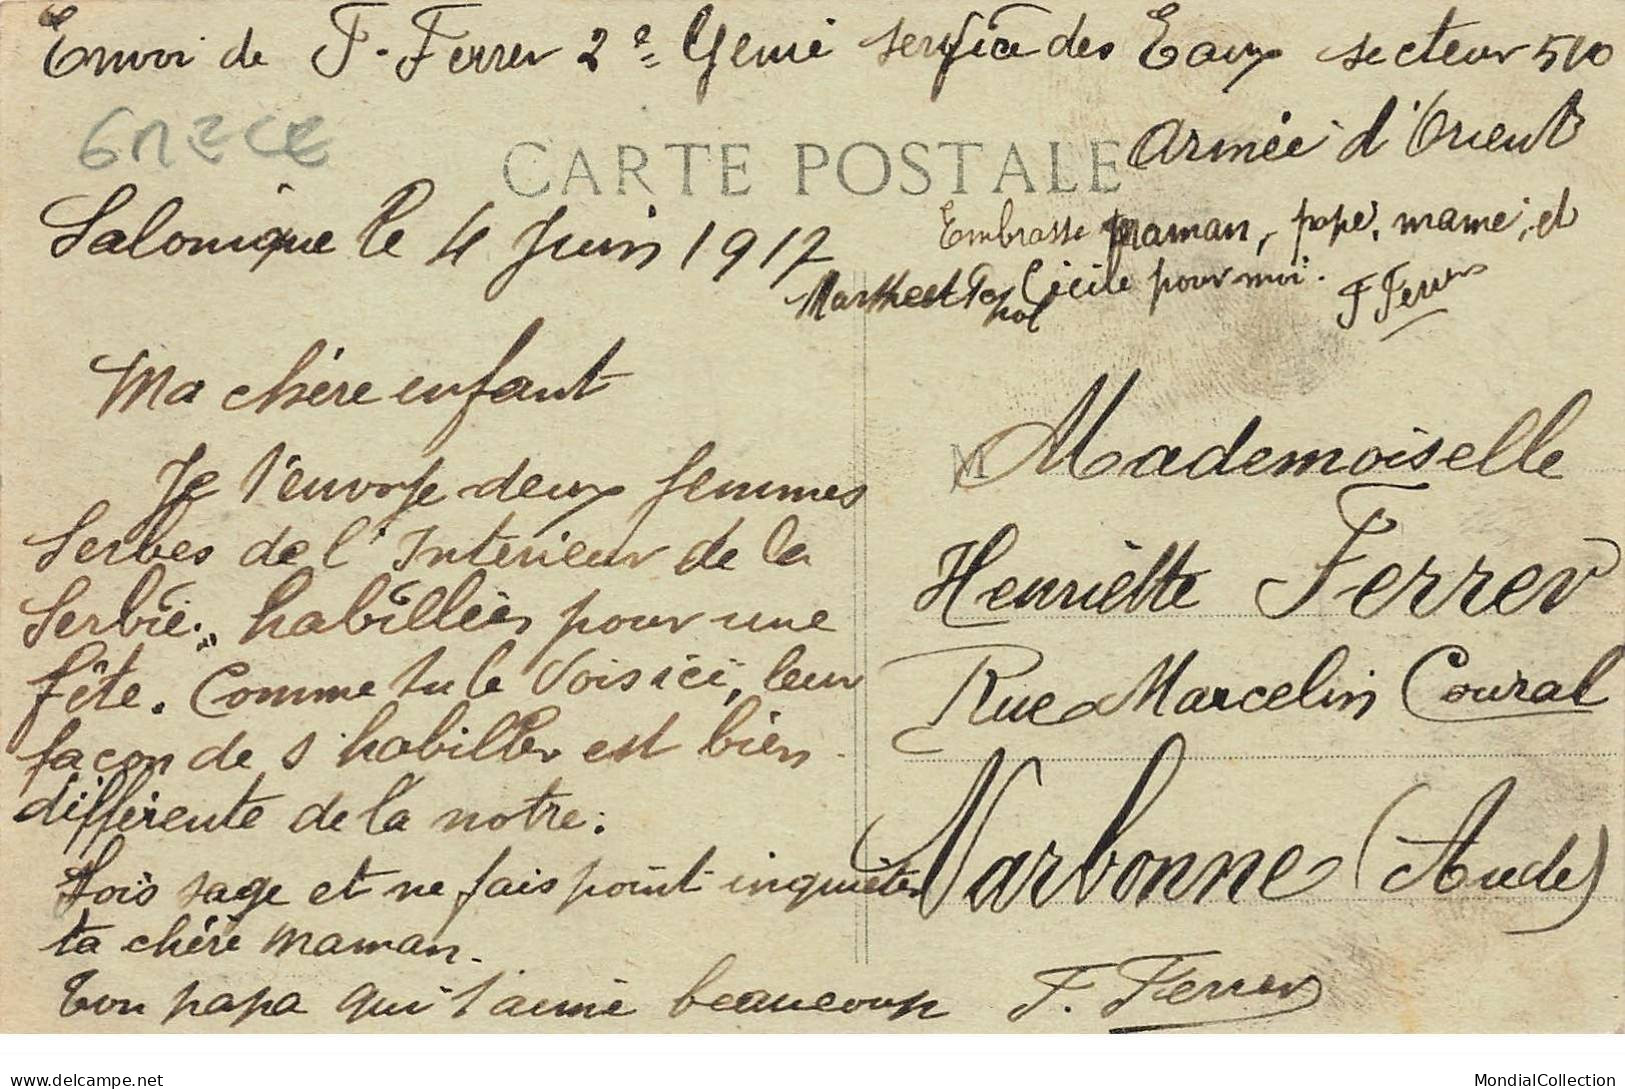 Envoi de F. Ferrer 2e Génie service des Eaux secteur 510
Armée d'Orient
GRECE
CARTE POSTALE
Salonique le 4 Juin 1917
Embrasse maman, papé, mamé, et
Cécile pour moi.
F Ferrer
Ma chère enfant
Je t'envoye deux femmes
Serbes de l'Intérieur de la
Serbie. habillées pour une
fête. Comme tu le vois ici, leur
façon de s'habiller est bien
différente de la notre.
Sois sage et ne fais point inquièter
ta chère maman.
Ton papa qui t'aime beaucoup F. Ferrer
M
Mademoiselle
Henriette Ferrer
Rue Marcelin Coural
Narbonne (Aude)
delcampe.net
MondialCollection